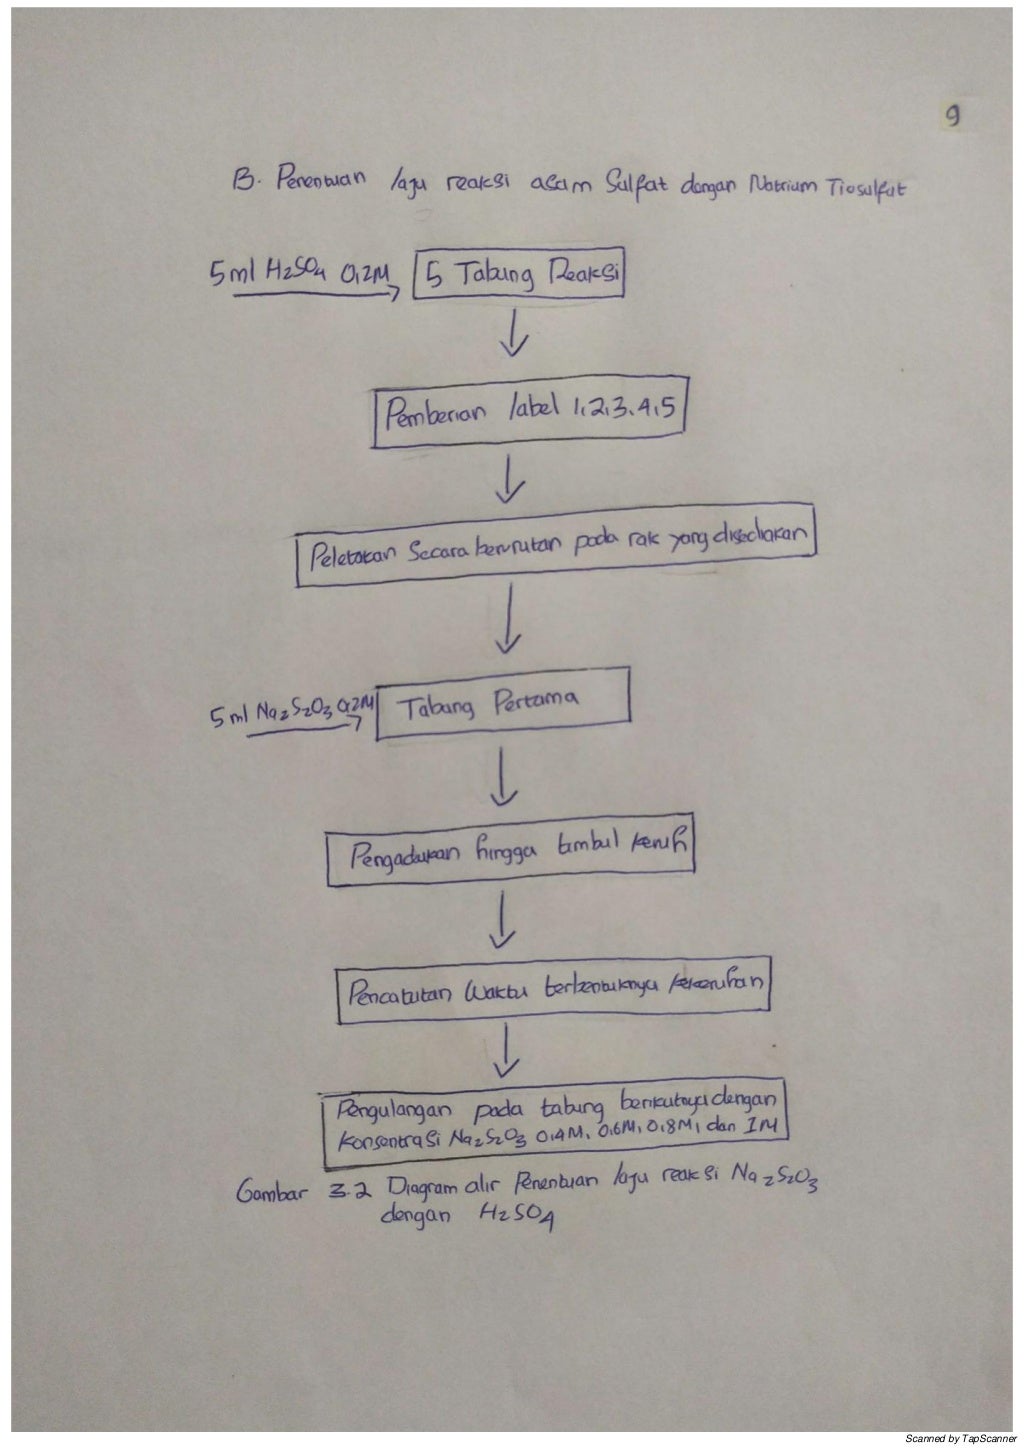 9
B. Penentuan laju reaksi asam Sulfat dengan Natrium Tiosulfat
5 ml H2SO4 0,2M
5 Tabung Reaksi
Pemberian label 1,2,3,4,5
Peletakan Secara berurutan pada rak yang disediakan
5 ml Na2S2O3 0,2M
Tabung Pertama
Pengadukan hingga timbul keruh
Pencatatan Waktu terbentuknya kekeruhan
Pengulangan pada tabung berikutnya dengan
Konsentrasi Na2S2O3 0,4M, 0,6M, 0,8M, dan 1M
Gambar 3.2 Diagram alir Penentuan laju reaksi Na2S2O3
dengan H2SO4
Scanned by TapScanner